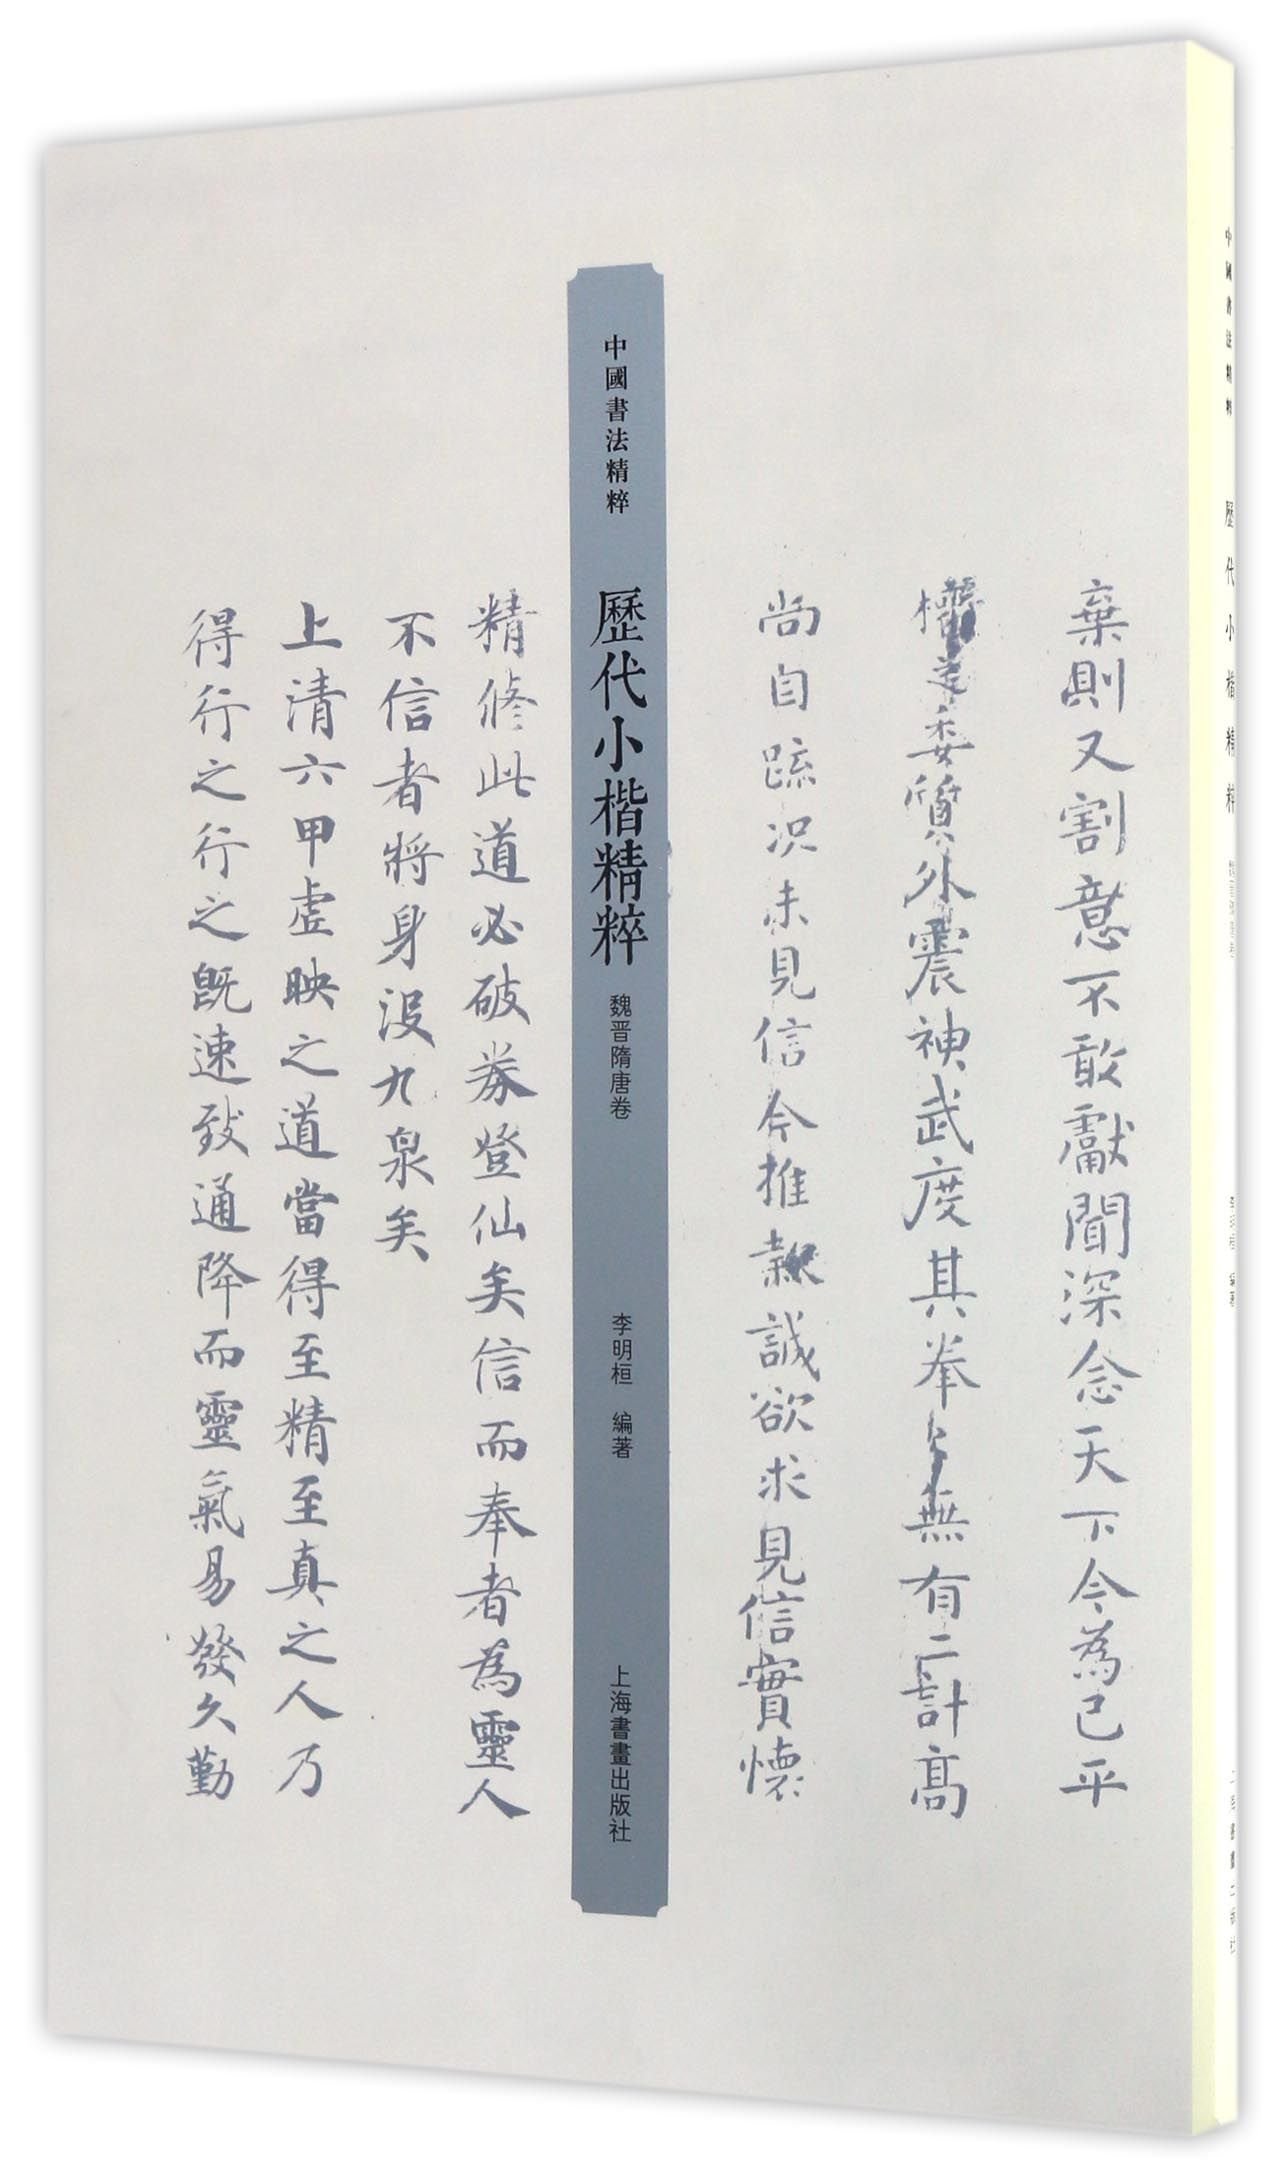 棄則又割意不敢獻聞深念天下今為已平
權之委質外震神武度其拳拳無有二計高
尚自疏況未見信今推款誠欲求見信實懷
中國書法精粹
歷代小楷精粹
魏晋隋唐卷
李明桓 編著
上海書畫出版社
精修此道必破券登仙矣信而奉者為靈人
不信者將身沒九泉矣
上清六甲虛映之道當得至精至真之人乃
得行之行之既速致通降而靈氣易發久勤
中國書法精粹
歷代小楷精粹
魏晋隋唐卷
李明桓 編著
上海書畫出版社